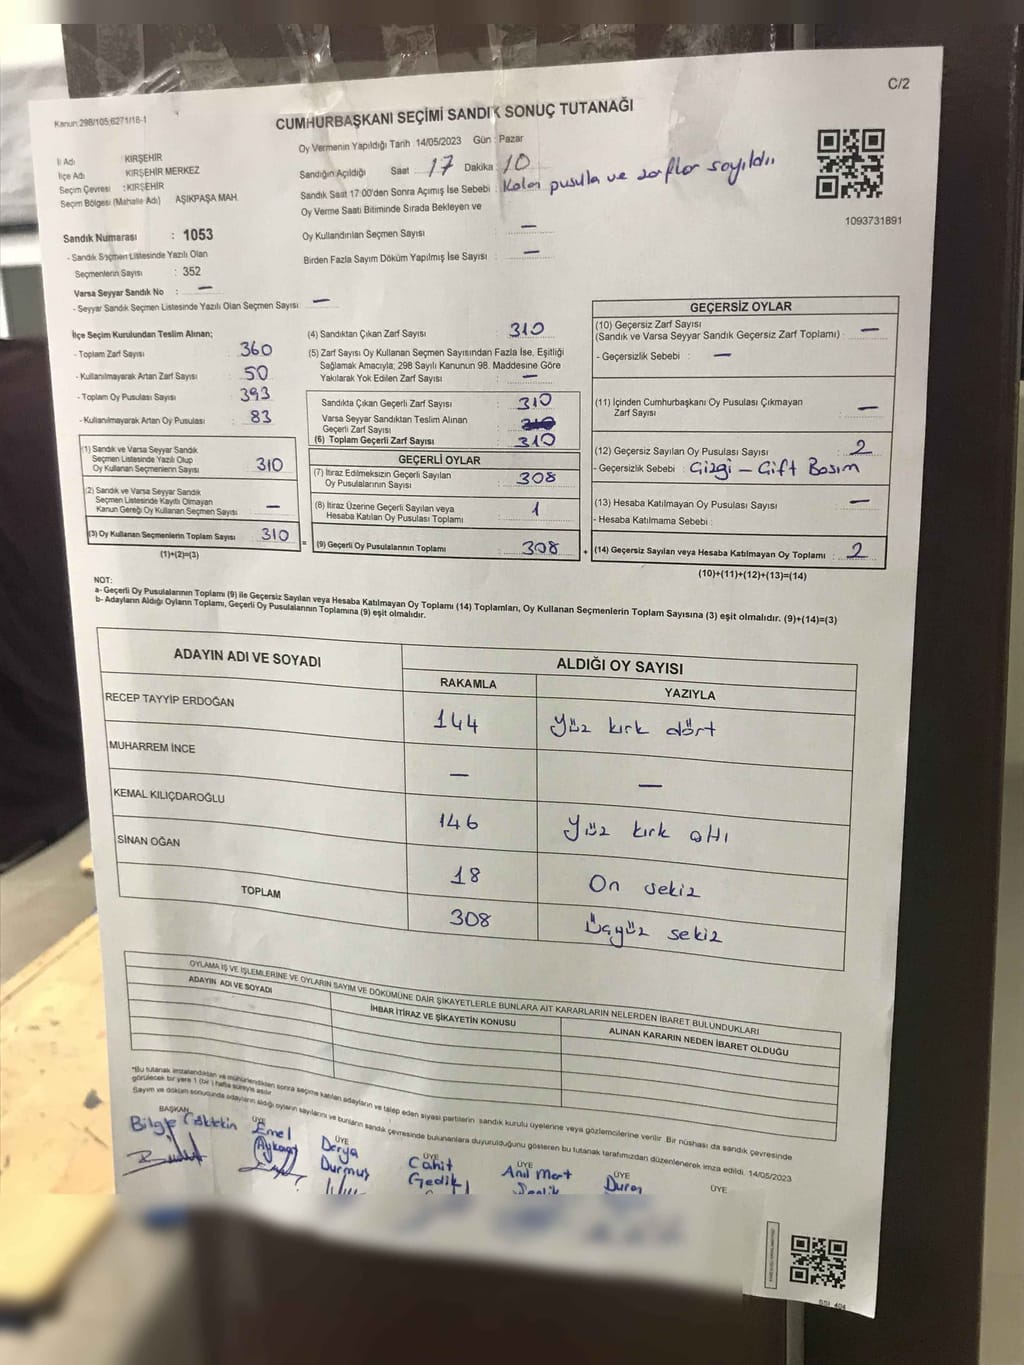 C/2
Kanun:298/105;6271/18-1
CUMHURBAŞKANI SEÇİMİ SANDIK SONUÇ TUTANAĞI
Oy Vermenin Yapıldığı Tarih 14/05/2023 Gün : Pazar
İl Adı KIRŞEHİR
İlçe Adı KIRŞEHİR MERKEZ
Seçim Çevresi : KIRŞEHİR
Seçim Bölgesi (Mahalle Adı) AŞIKPAŞA MAH.
Sandığın Açıldığı Saat 17 Dakika 10
Sandık Saat 17:00'den Sonra Açımış İse Sebebi : Kalan pusula ve zarflar sayıldı
Oy Verme Saati Bitiminde Sırada Bekleyen ve
Oy Kullandırılan Seçmen Sayısı : —
Birden Fazla Sayım Döküm Yapılmış İse Sayısı : —
1093731891
Sandık Numarası : 1053
- Sandık Seçmen Listesinde Yazılı Olan
Seçmenlerin Sayısı : 352
Varsa Seyyar Sandık No : —
- Seyyar Sandık Seçmen Listesinde Yazılı Olan Seçmen Sayısı : —
İlçe Seçim Kurulundan Teslim Alınan;
- Toplam Zarf Sayısı : 360
- Kullanılmayarak Artan Zarf Sayısı : 50
- Toplam Oy Pusulası Sayısı : 393
- Kullanılmayarak Artan Oy Pusulası : 83
(1) Sandık ve Varsa Seyyar Sandık
Seçmen Listesinde Yazılı Olup
Oy Kullanan Seçmenlerin Sayısı : 310
(2) Sandık ve Varsa Seyyar Sandık
Seçmen Listesinde Kayıtlı Olmayan
Kanun Gereği Oy Kullanan Seçmen Sayısı : —
(3) Oy Kullanan Seçmenlerin Toplam Sayısı : 310
(1)+(2)=(3)
(4) Sandıktan Çıkan Zarf Sayısı : 310
(5) Zarf Sayısı Oy Kullanan Seçmen Sayısından Fazla İse, Eşitliği
Sağlamak Amacıyla; 298 Sayılı Kanunun 98. Maddesine Göre
Yakılarak Yok Edilen Zarf Sayısı : —
Sandıkta Çıkan Geçerli Zarf Sayısı : 310
Varsa Seyyar Sandıktan Teslim Alınan
Geçerli Zarf Sayısı :
(6) Toplam Geçerli Zarf Sayısı : 310
GEÇERLİ OYLAR
(7) İtiraz Edilmeksizin Geçerli Sayılan
Oy Pusulalarının Sayısı : 308
(8) İtiraz Üzerine Geçerli Sayılan veya
Hesaba Katılan Oy Pusulası Toplamı : 1
= (9) Geçerli Oy Pusulalarının Toplamı : 308 +
GEÇERSİZ OYLAR
(10) Geçersiz Zarf Sayısı
(Sandık ve Varsa Seyyar Sandık Geçersiz Zarf Toplamı) : —
- Geçersizlik Sebebi : —
(11) İçinden Cumhurbaşkanı Oy Pusulası Çıkmayan
Zarf Sayısı : —
(12) Geçersiz Sayılan Oy Pusulası Sayısı : 2
- Geçersizlik Sebebi : Çizgi – Çift Basım
(13) Hesaba Katılmayan Oy Pusulası Sayısı : —
- Hesaba Katılmama Sebebi :
(14) Geçersiz Sayılan veya Hesaba Katılmayan Oy Toplamı : 2
(10)+(11)+(12)+(13)=(14)
NOT:
a- Geçerli Oy Pusulalarının Toplamı (9) ile Geçersiz Sayılan veya Hesaba Katılmayan Oy Toplamı (14) Toplamları, Oy Kullanan Seçmenlerin Toplam Sayısına (3) eşit olmalıdır. (9)+(14)=(3)
b- Adayların Aldığı Oyların Toplamı, Geçerli Oy Pusulalarının Toplamına (9) eşit olmalıdır.
ADAYIN ADI VE SOYADI ALDIĞI OY SAYISI
RAKAMLA YAZIYLA
RECEP TAYYİP ERDOĞAN 144 Yüz kırk dört
MUHARREM İNCE — —
KEMAL KILIÇDAROĞLU 146 Yüz kırk altı
SİNAN OĞAN 18 On sekiz
TOPLAM 308 Üçyüz sekiz
OYLAMA İŞ VE İŞLEMLERİNE VE OYLARIN SAYIM VE DÖKÜMÜNE DAİR ŞİKAYETLERLE BUNLARA AİT KARARLARIN NELERDEN İBARET BULUNDUKLARI
ADAYIN ADI VE SOYADI İHBAR İTİRAZ VE ŞİKAYETİN KONUSU ALINAN KARARIN NEDEN İBARET OLDUĞU
*Bu tutanak imzalandıktan ve mühürlendikten sonra seçime katılan adayların ve talep eden siyasi partilerin sandık kurulu üyelerine veya gözlemcilerine verilir. Bir nüshası da sandık çevresinde
görülecek bir yere 1 (bir) hafta süreyle asılır.
Sayım ve döküm sonucunda adayların aldığı oyların sayılarını ve bunların sandık çevresinde bulunanlara duyurulduğunu gösteren bu tutanak tarafımızdan düzenlenerek imza edildi. 14/05/2023
BAŞKAN ÜYE ÜYE ÜYE ÜYE ÜYE ÜYE
Bilge Emel Derya Cahit Anıl Mert
Durmuş Gedik